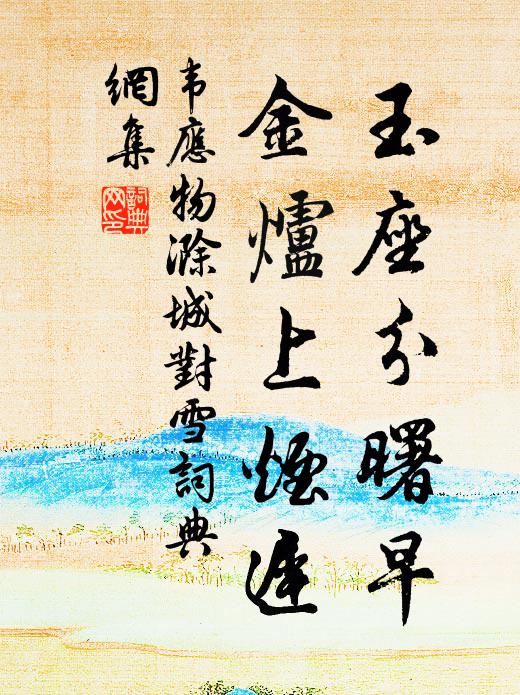 玉座分曙早
金爐上煙遲
韦應物滁城對雪詞典
網集
詞典
网印